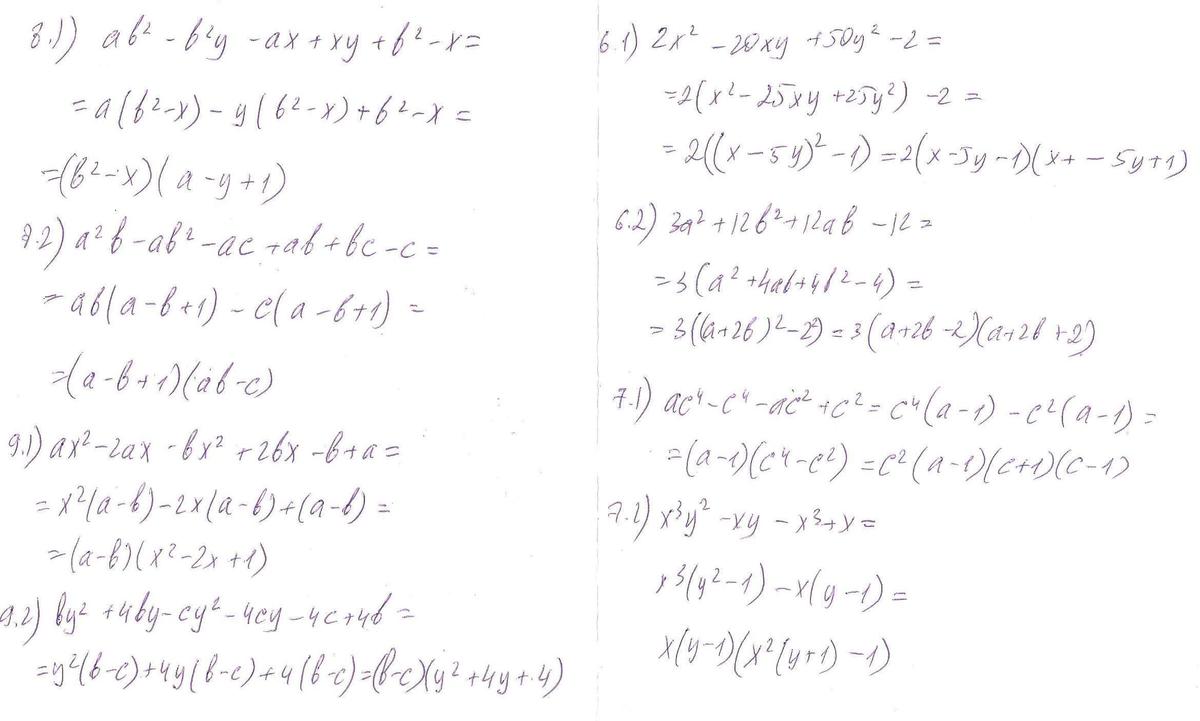 8.1) ab² - b²y - ax + xy + b² - x =
= a(b² - x) - y(b² - x) + b² - x =
= (b² - x)(a - y + 1)
7.2) a²b - ab² - ac + ab + bc - c =
= ab(a - b + 1) - c(a - b + 1) =
= (a - b + 1)(ab - c)
9.1) ax² - 2ax - bx² + 2bx - b + a =
= x²(a - b) - 2x(a - b) + (a - b) =
= (a - b)(x² - 2x + 1)
9.2) by² + 4by - cy² - 4cy - 4c + 4b =
= y²(b - c) + 4y(b - c) + 4(b - c) = (b - c)(y² + 4y + 4)
6.1) 2x² - 20xy + 50y² - 2 =
= 2(x² - 25xy + 25y²) - 2 =
= 2((x - 5y)² - 1) = 2(x - 5y - 1)(x + - 5y + 1)
6.2) 3a² + 12b² + 12ab - 12 =
= 3(a² + 4ab + 4b² - 4) =
= 3((a + 2b)² - 2²) = 3(a + 2b - 2)(a + 2b + 2)
7.1) ac⁴ - c⁴ - ac² + c² = c⁴(a - 1) - c²(a - 1) =
= (a - 1)(c⁴ - c²) = c²(a - 1)(c + 1)(c - 1)
7.2) x³y² - xy - x³ + x =
x³(y² - 1) - x(y - 1) =
x(y - 1)(x²(y + 1) - 1)